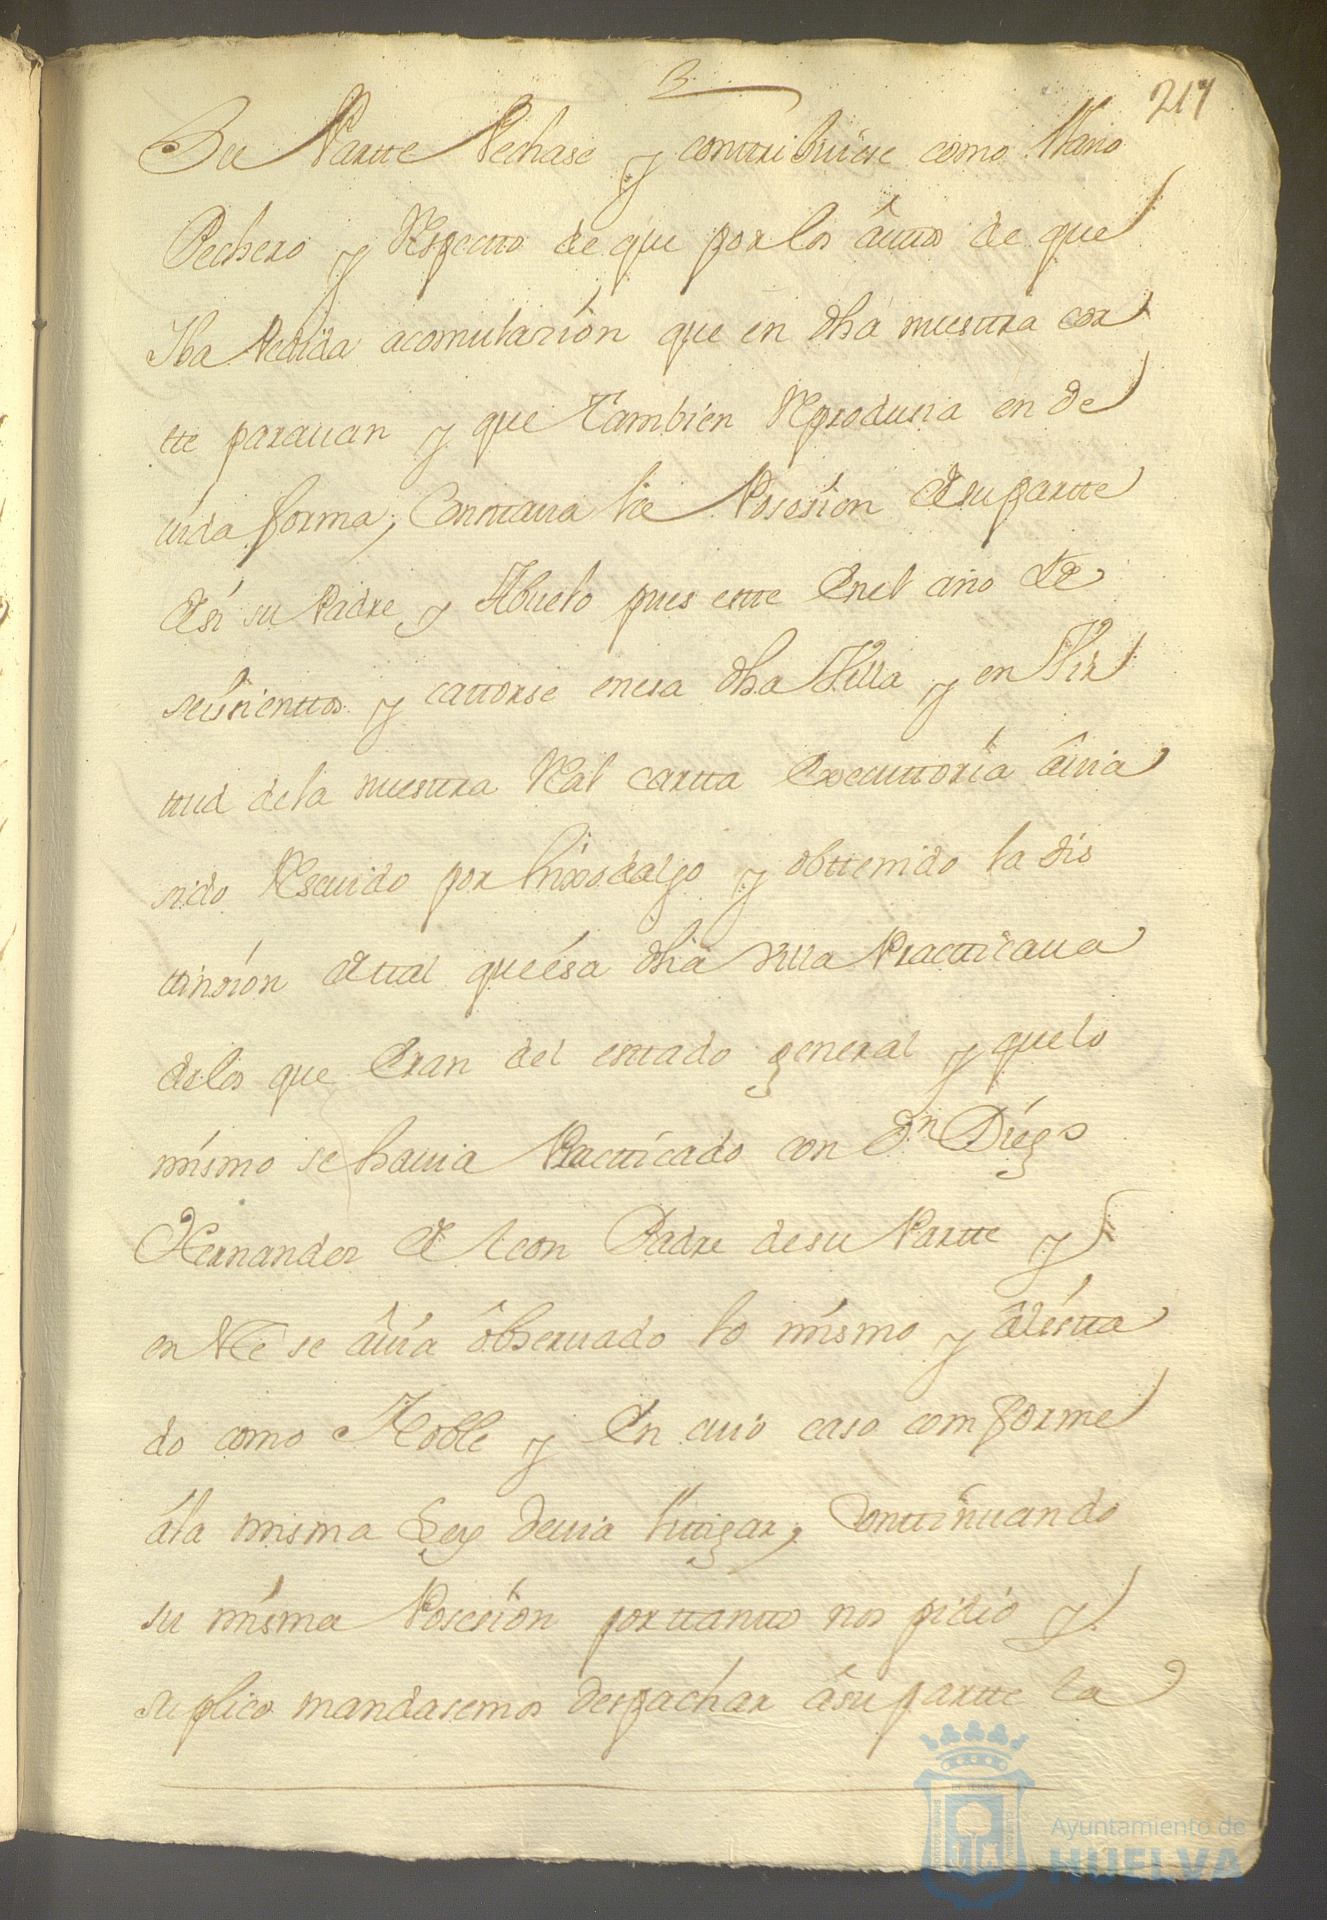 3
217
Su Partte Pechase y conttribuiese como Llano
Pechero y Respectto de que por los âuttos de que
Iba Pedida acomulazión que en dha nuestra cor
tte parauan y que Tambien Reproducia en de
uida forma, Conttaua la Posesion de su partte
de si su Padre y Abuelo pues estte en el año de
seiscienttos y cattorse en esa dha Villa y en Vir
ttud de la nuesttra Real cartta executtoria âuia
sido Resiuido por hixosdalgo y obttenido la dis
ttinsión de ttal que ésa dha Villa Practticaua
de los que eran del esttado general y que lo
mismo se hauia Practticado con Dn Diego
Hernandez de Leon Padre de su Partte y
en Re se âuia ôbseruado lo mismo y âl estta
do como Noble y en cuio caso comforme
á la misma Ley deuia littigar, Conttinuando
su misma Posesión por ttantto nos pidió y
suplico mandasemos despachar â su partte la
Ayuntamiento de
HUELVA